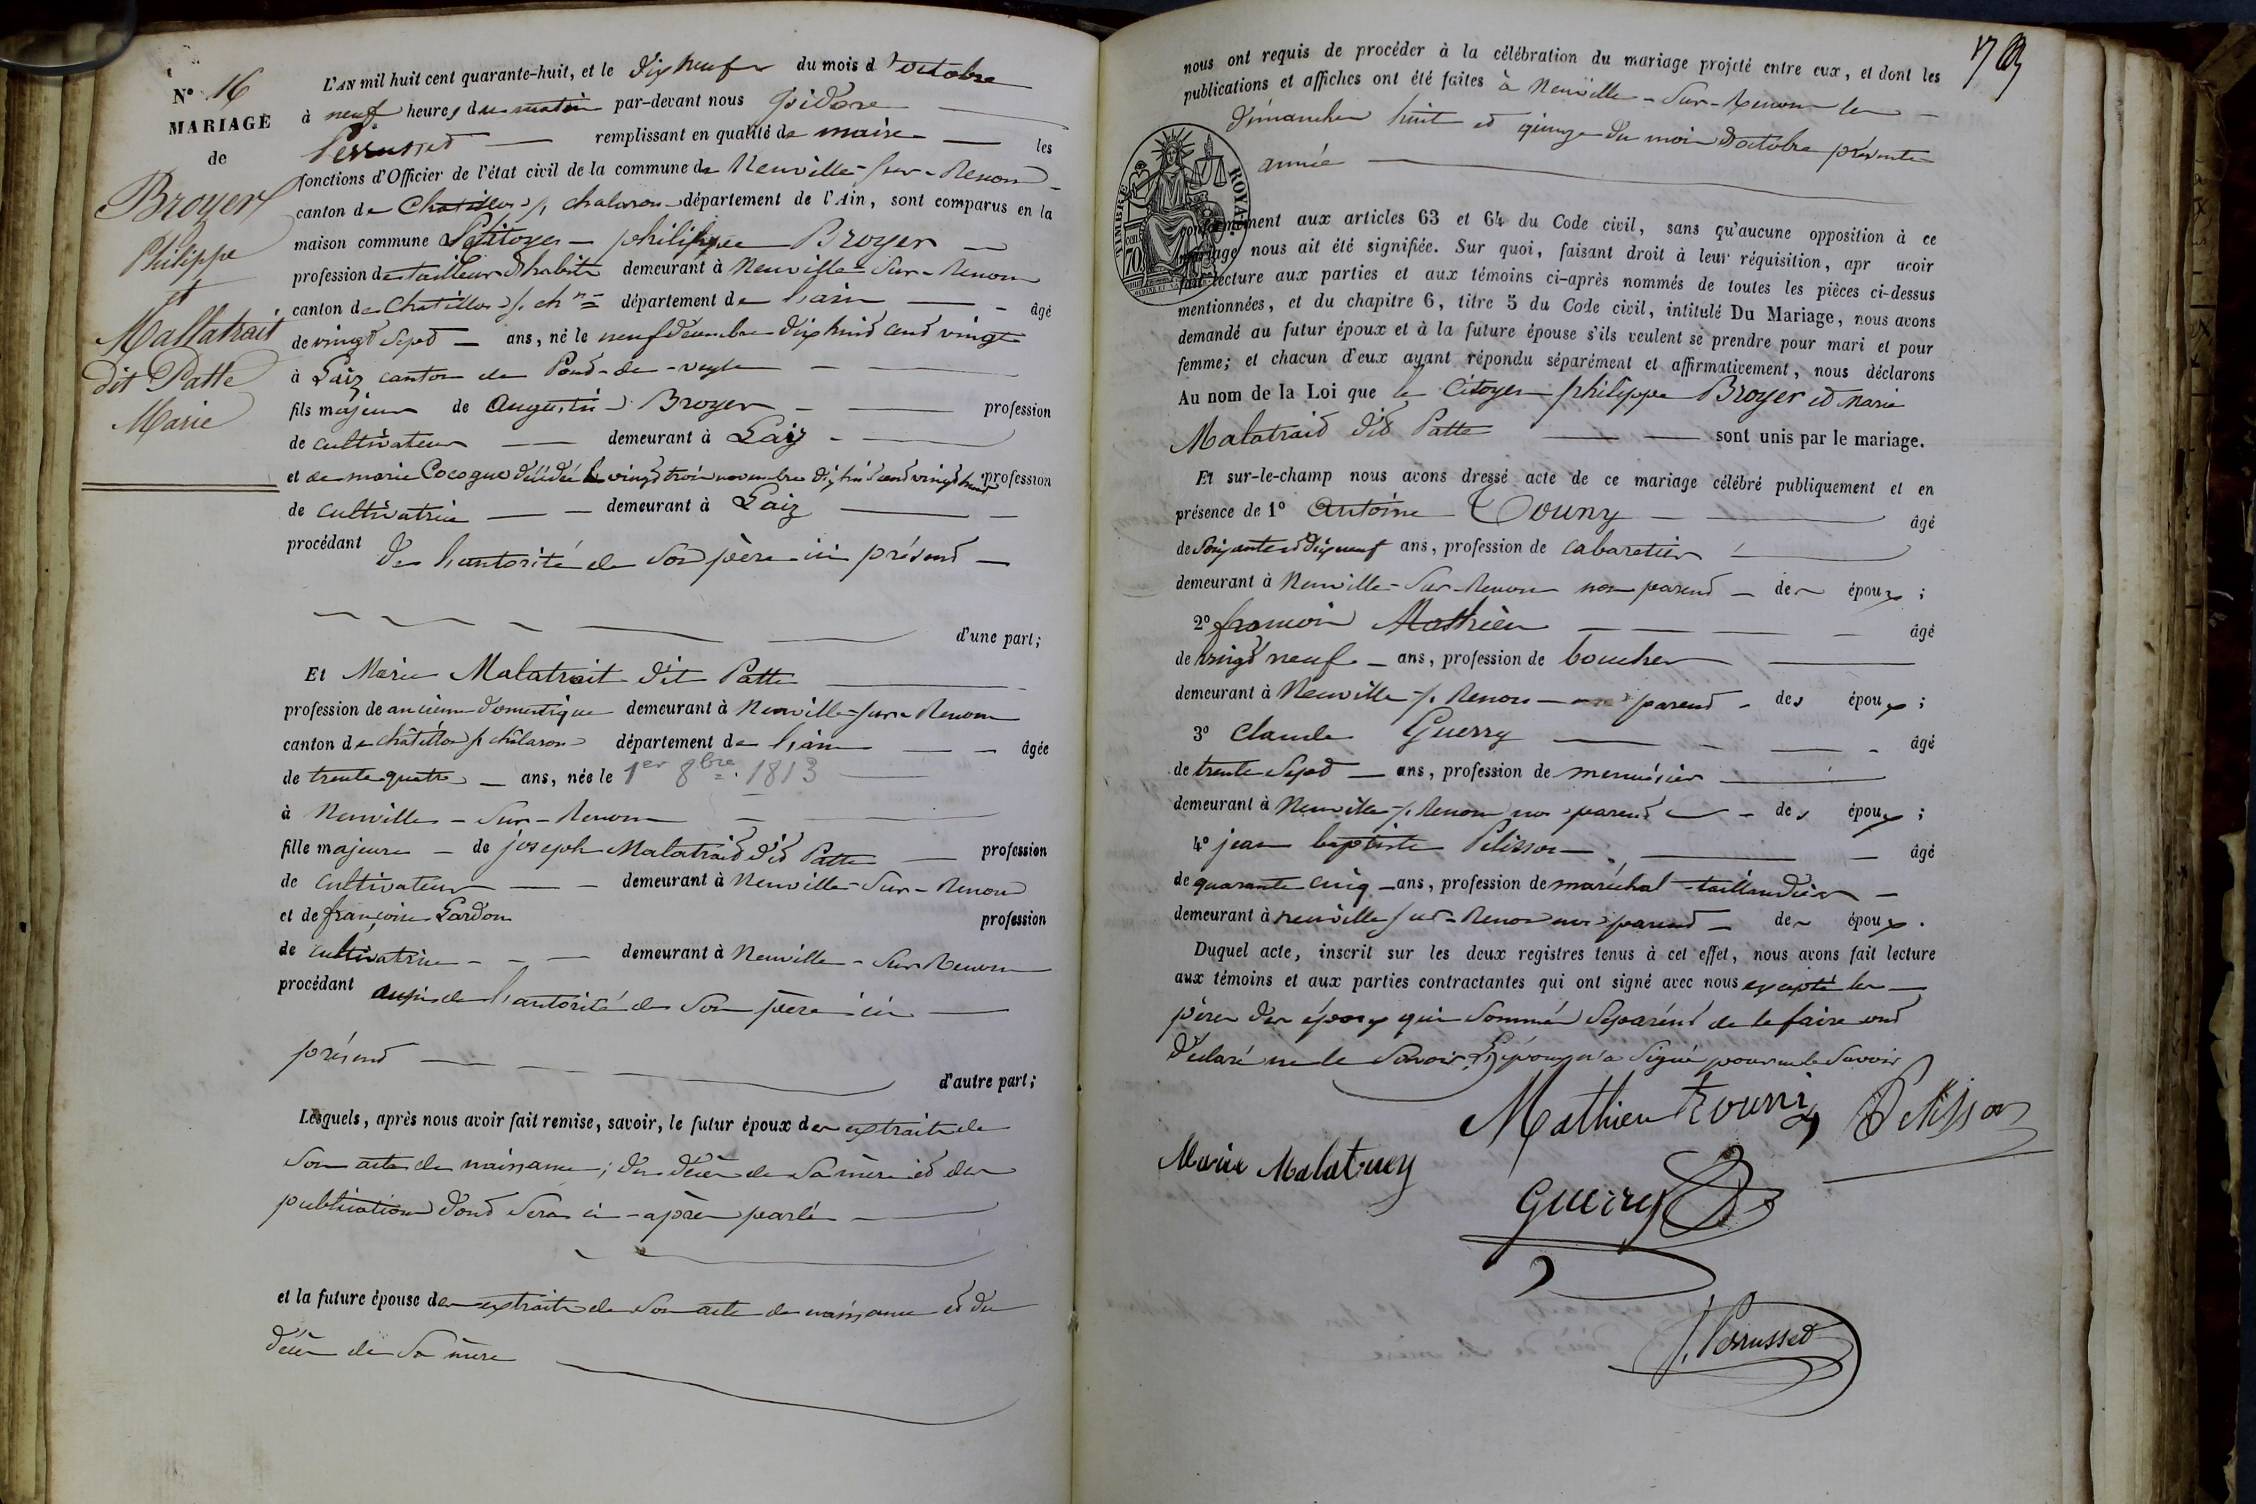 N° 16
MARIAGE
de
Broyer
Philippe
et
Mallatrait
dit Patte
Marie
L'AN mil huit cent quarante-huit, et le dix neuf du mois d'octobre
à neuf heures du matin par-devant nous isidore
Perrusset remplissant en qualité de maire les
fonctions d'Officier de l'état civil de la commune de Neuville-sur-Renom
canton de Chatillon s/ chalaron département de l'Ain, sont comparus en la
maison commune Le citoyen philippe Broyer
profession de tailleur d'habits demeurant à Neuville-Sur-Renom
canton de Chatillon s/ ch.ne département de l'ain âgé
de vingt Sept ans, né le neuf décembre dix huit cent vingt
à Laiz canton de Pond-de-veyle
fils majeur de Augustin Broyer profession
de cultivateur demeurant à Laiz
et de marie Cocogne décédée le vingt trois novembre dix huit cent vingt huit profession
de cultivatrice demeurant à Laiz
procédant de l'autorité de Son père ici présend
d'une part;
Et Marie Malatrait dit Patte
profession de ancienne domestique demeurant à Neuville-sur-Renom
canton de châtillon s/ châlaron département de l'ain âgée
de trente quatre ans, née le 1er 8bre 1813
à Neuville-Sur-Renom
fille majeure de joseph Malatraid did Patte profession
de cultivateur demeurant à Neuville-Sur-Renom
et de françoise Lardon profession
de cultivatrice demeurant à Neuville-Sur-Renom
procédant aussi de l'autorité de Son père ici
présend
d'autre part;
Lesquels, après nous avoir fait remise, savoir, le futur époux des extraits de
Son acte de naissance; du décès de Sa mère et des
publications dond Sera ci-après parlé
et la future épouse des extraits de Son acte de naissance et du
décès de Sa mère
17
nous ont requis de procéder à la célébration du mariage projeté entre eux, et dont les
publications et affiches ont été faites à Neuville-Sur-Renom les
dimanches huit et quinze du mois d'octobre présente
année
TIMBRE ROYAL
70
conformément aux articles 63 et 64 du Code civil, sans qu'aucune opposition à ce
mariage nous ait été signifiée. Sur quoi, faisant droit à leur réquisition, apr avoir
fait lecture aux parties et aux témoins ci-après nommés de toutes les pièces ci-dessus
mentionnées, et du chapitre 6, titre 5 du Code civil, intitulé Du Mariage, nous avons
demandé au futur époux et à la future épouse s'ils veulent se prendre pour mari et pour
femme; et chacun d'eux ayant répondu séparément et affirmativement, nous déclarons
Au nom de la Loi que le Citoyen philippe Broyer et Marie
Malatraid did Patte sont unis par le mariage.
Et sur-le-champ nous avons dressé acte de ce mariage célébré publiquement et en
présence de 1° Antoine Touny âgé
de Soixante et dix neuf ans, profession de cabaretier
demeurant à Neuville-Sur-Renom non parend des époux;
2° françois Mathieu âgé
de vingt neuf ans, profession de boucher
demeurant à Neuville-s/ Renom parend des époux;
3° Claude Guerry âgé
de trente Sept ans, profession de menuisier
demeurant à Neuville-s/ Renom non parend des époux;
4° jean baptiste Pelisson âgé
de quarante cinq ans, profession de maréchal-taillandier
demeurant à neuville sur-Renom non parend des époux.
Duquel acte, inscrit sur les deux registres tenus à cet effet, nous avons fait lecture
aux témoins et aux parties contractantes qui ont signé avec nous excepté les
pères des époux qui Sommés Séparént de le faire ont
déclaré ne le Savoir. L'époux n'a Signé pour ne le Savoir
Mathieu Touni Pelisson
Marie Malatrey
Guerry
J. Perrusset